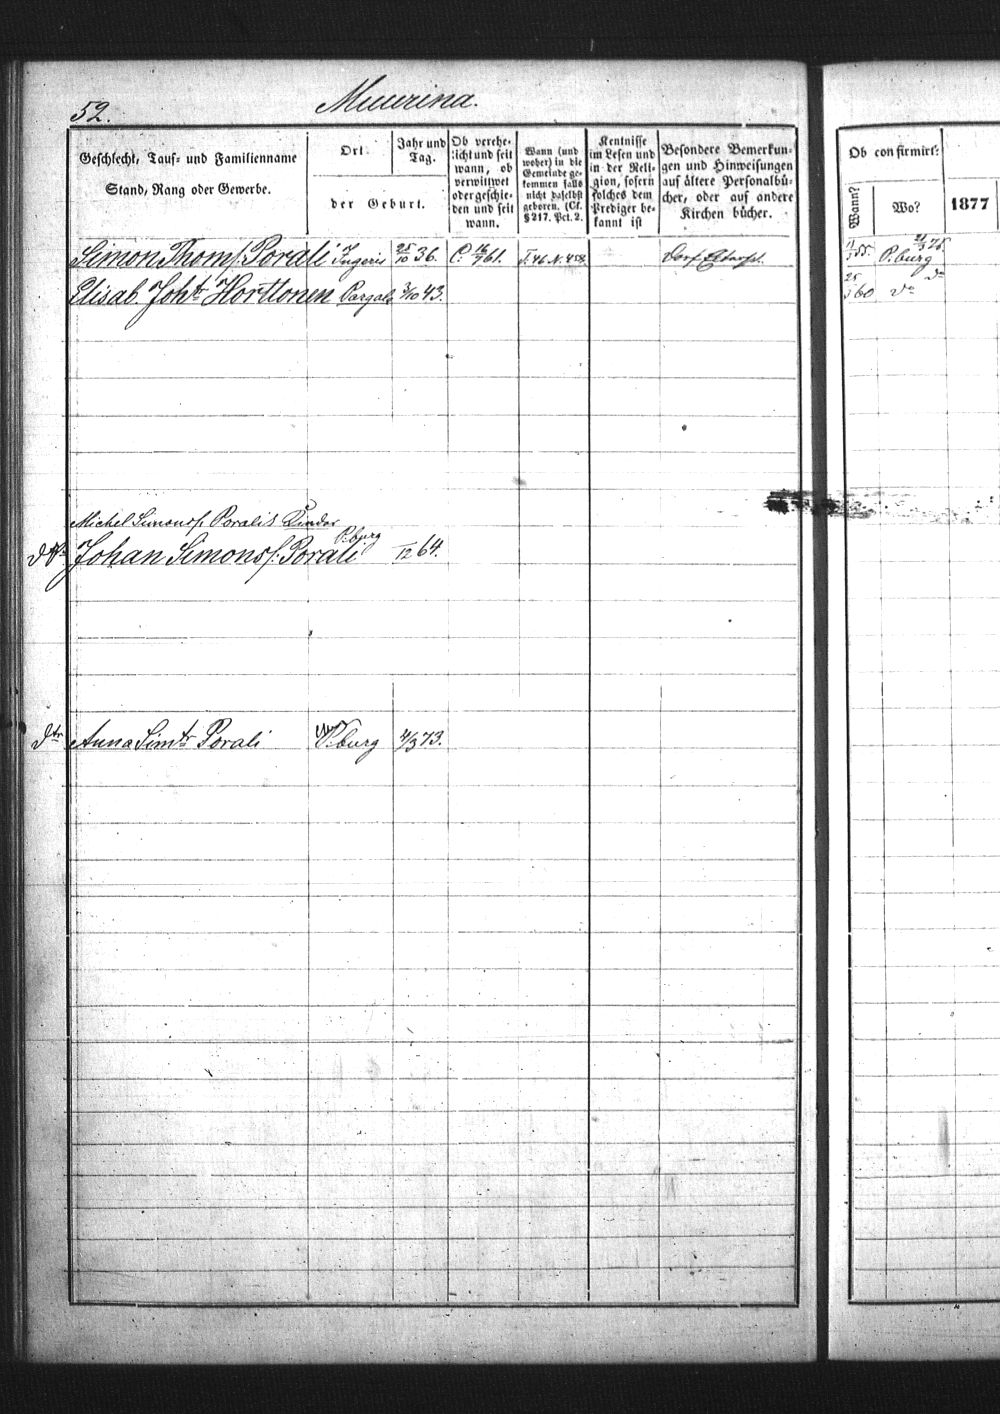 52.
Muurina.
Geschlecht, Tauf- und Familienname
Stand, Rang oder Gewerbe.
Ort
Jahr und
Tag.
der Geburt.
Ob verehe-
licht und seit
wann, ob
verwittwet
oder geschie-
den und seit
wann.
Wann (und
woher) in die
Gemeinde ge-
kommen falls
nicht daselbst
geboren. (Cf.
§ 217. Pct. 2.
Kentnisse
im Lesen und
in der Reli-
gion, sofern
solches dem
Prediger be-
kannt ist
Besondere Bemerkun-
gen und Hinweisungen
auf ältere Personalbü-
cher, oder auf andere
Kirchen bücher.
Ob confirmirt:
Wann?
Wo?
1877
Simon Thoms. Porali Ingeris 25/10 36. C. 16/4 61. F. 46 N. 458 Dorf
55. P.burg 75
Elisab. Joht. Horttonen Pargala 3/10 43.
60 do do
Michel Simons. Poralis Kinder
Johan Simons. Porali P.burg /12 64.
dtr Anna Simtr Porali P.burg 4/3 73.